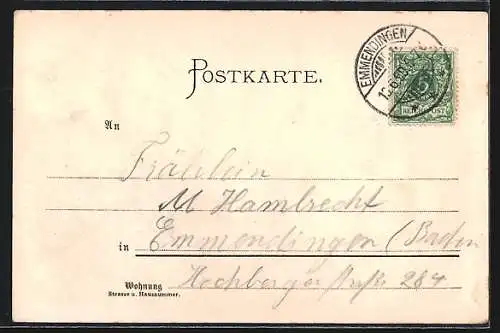 EMMENDINGEN
POSTKARTE.
REICHSPOST
An
Fräulein
M Hambrecht
in Emmendingen (Baden
Wohnung
Strasse u. Hausnummer.
Hochberger straße 284